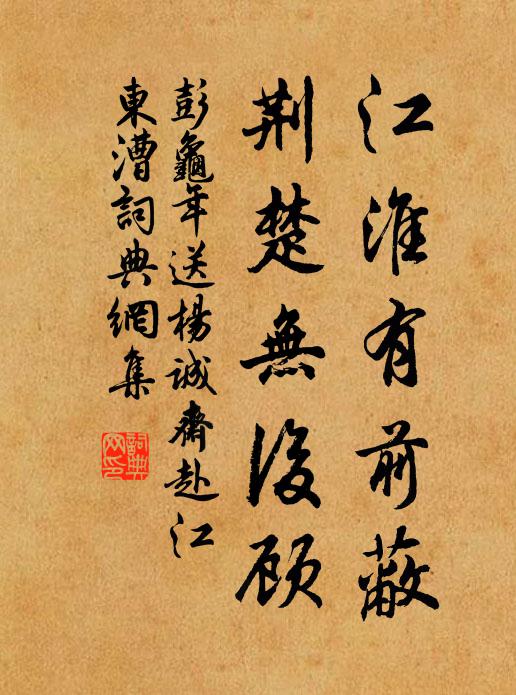 江淮有前蔽
荆楚無後顾
彭龜年送楊誠齋赴江
東漕詞典網集
詞典网印